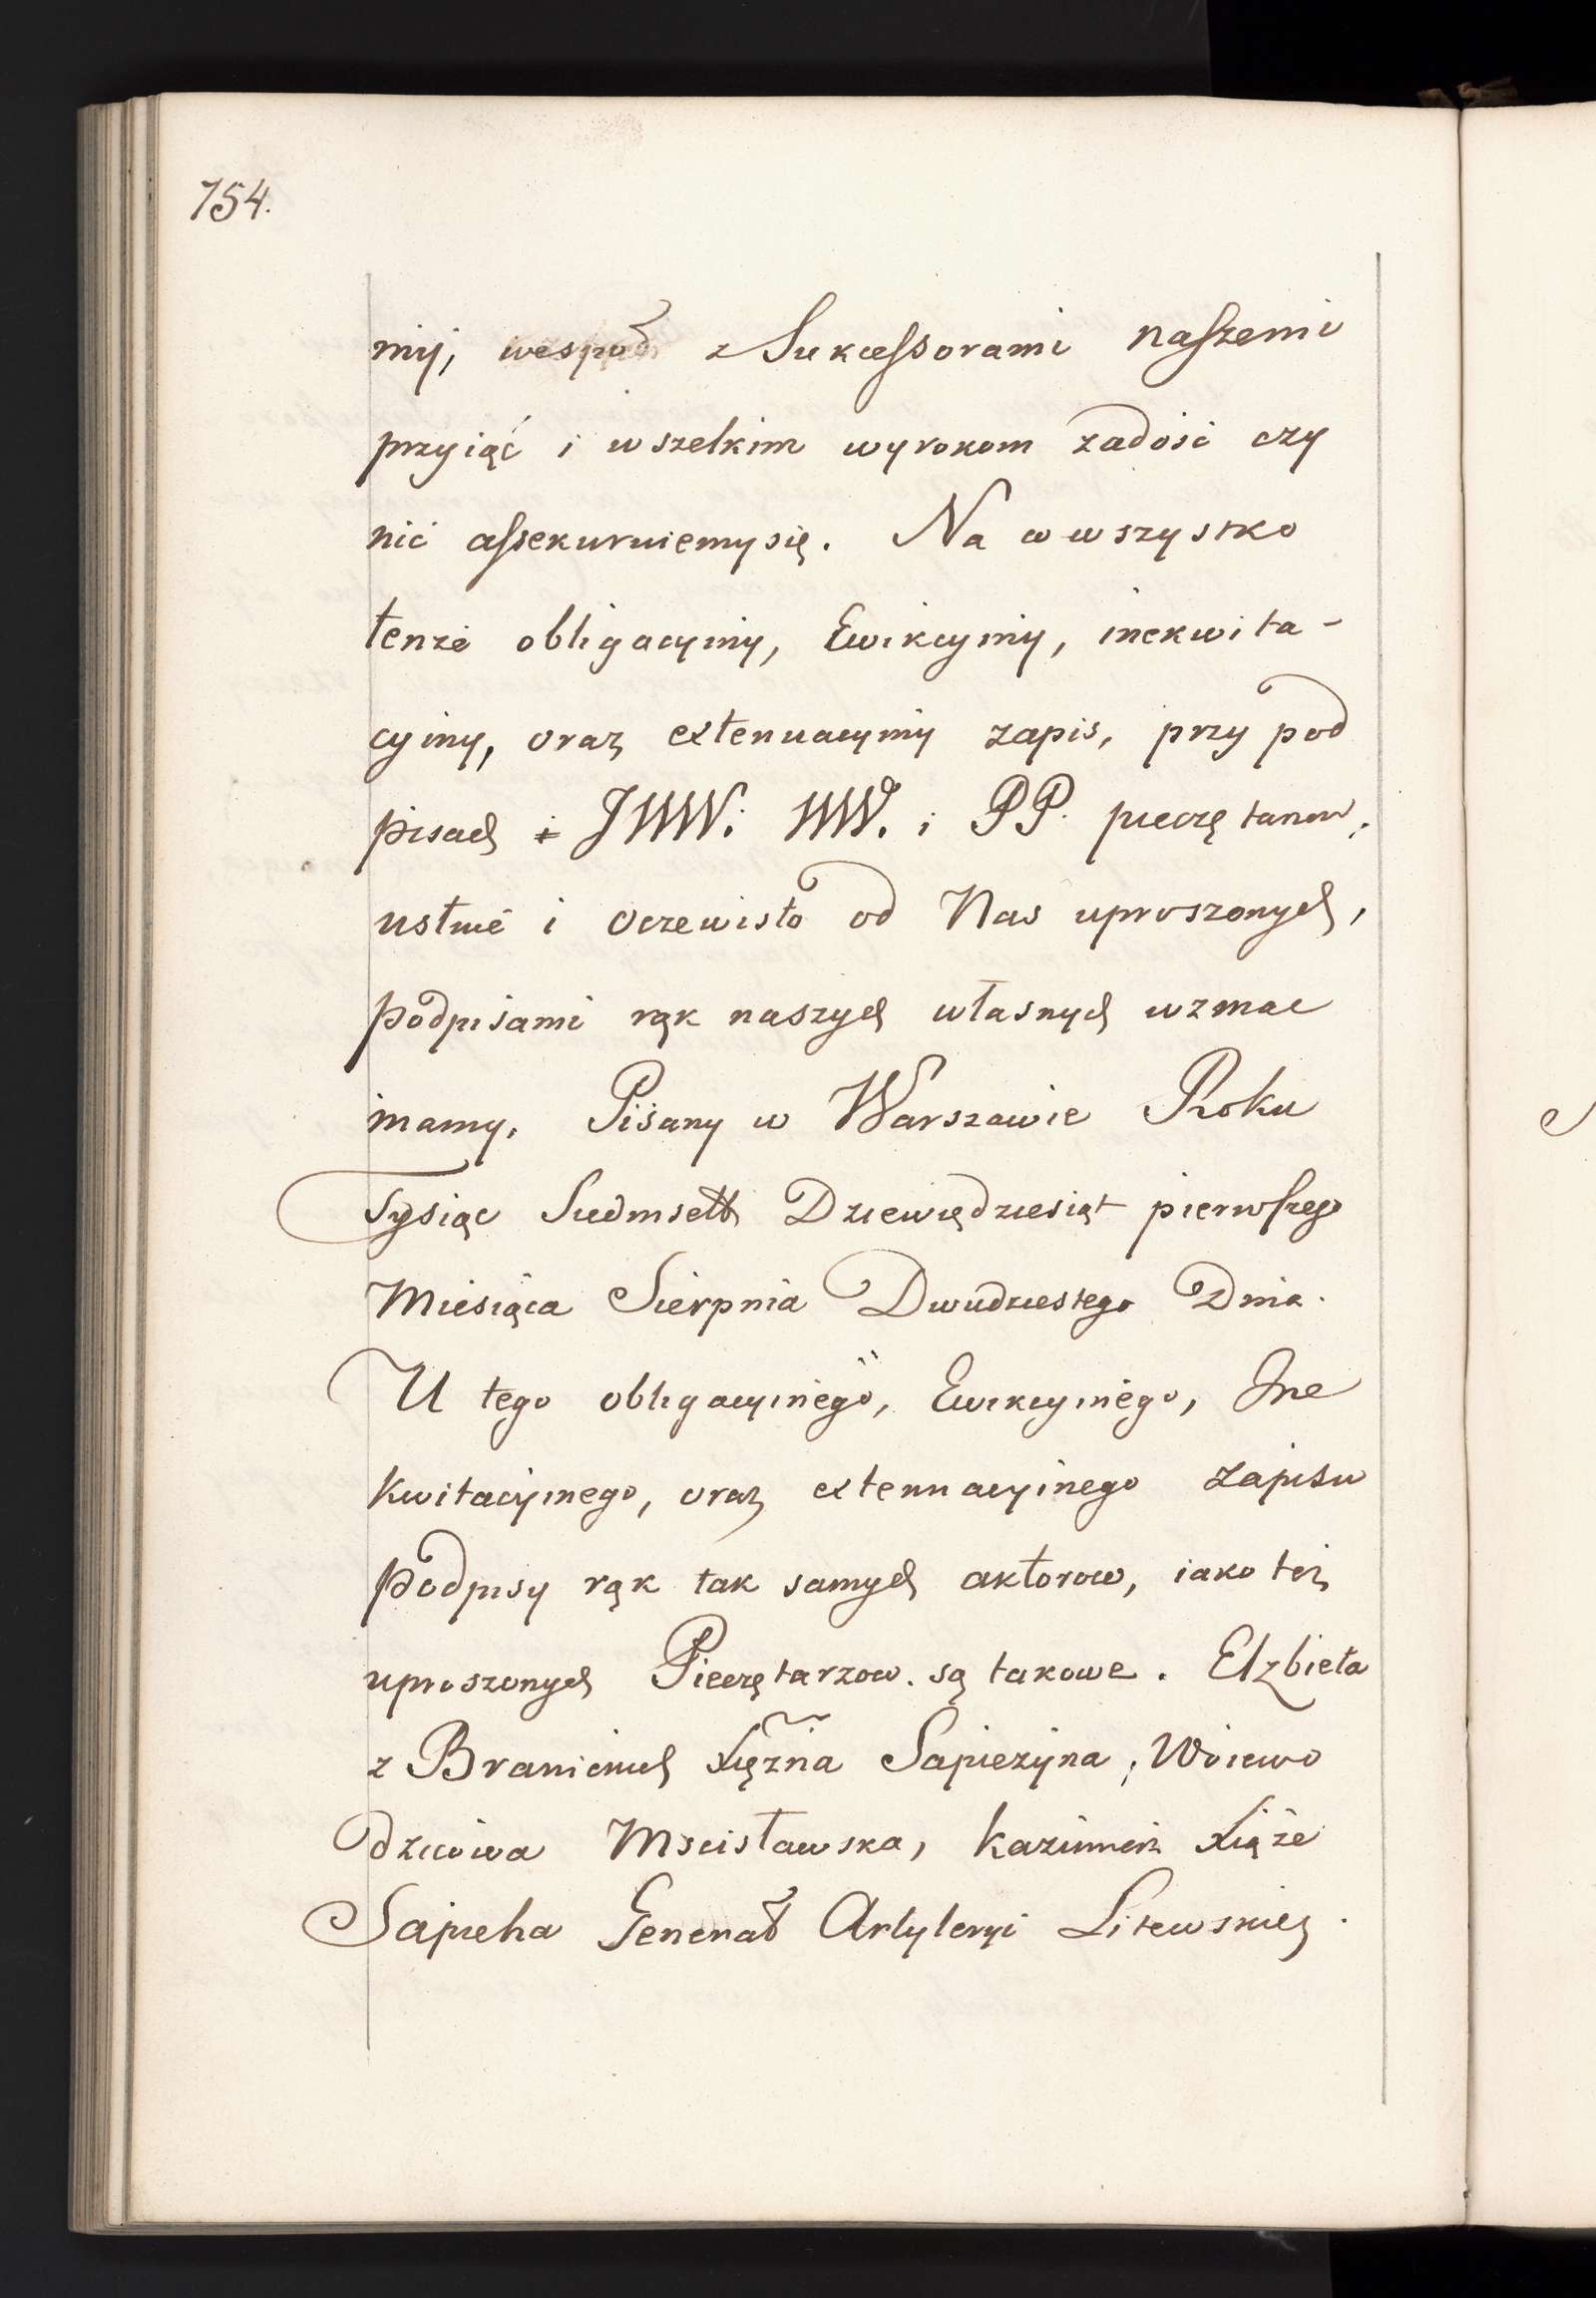 754.
mij, wespoł z Sukcessorami naszemi
przyiąć i wszelkim wyrokom zadość czy
nić assekuruiemysię. Na co wszystko
tenże obligacyiny, Ewikcyiny, inekwita-
cyiny, oraz extenuacyiny zapis, przy pod
pisach i JWW. WW. i PP. pieczętarzow,
ustnie i oczewisto od Nas uproszonych,
podpisami rąk naszych własnych wzmac
niamy, Pisany w Warszawie Roku
Tysiąc Siedmsett Dziewiędziesiąt pierwszego
Miesiąca Sierpnia Dwudziestego Dnia.
U tego obligacyinego, Ewikcyinego, Ine
kwitacyinego, oraz extenuacyinego zapisu
podpisy rąk tak samych aktorow, iako też
uproszonych Pieczętarzow. są takowe. Elzbieta
z Branickich Xiężna Sapieżyna, Woiewo
dzicowa Mscisławska, Kazimierz Xiąże
Sapieha Generał Artyleryi Litewskiey.